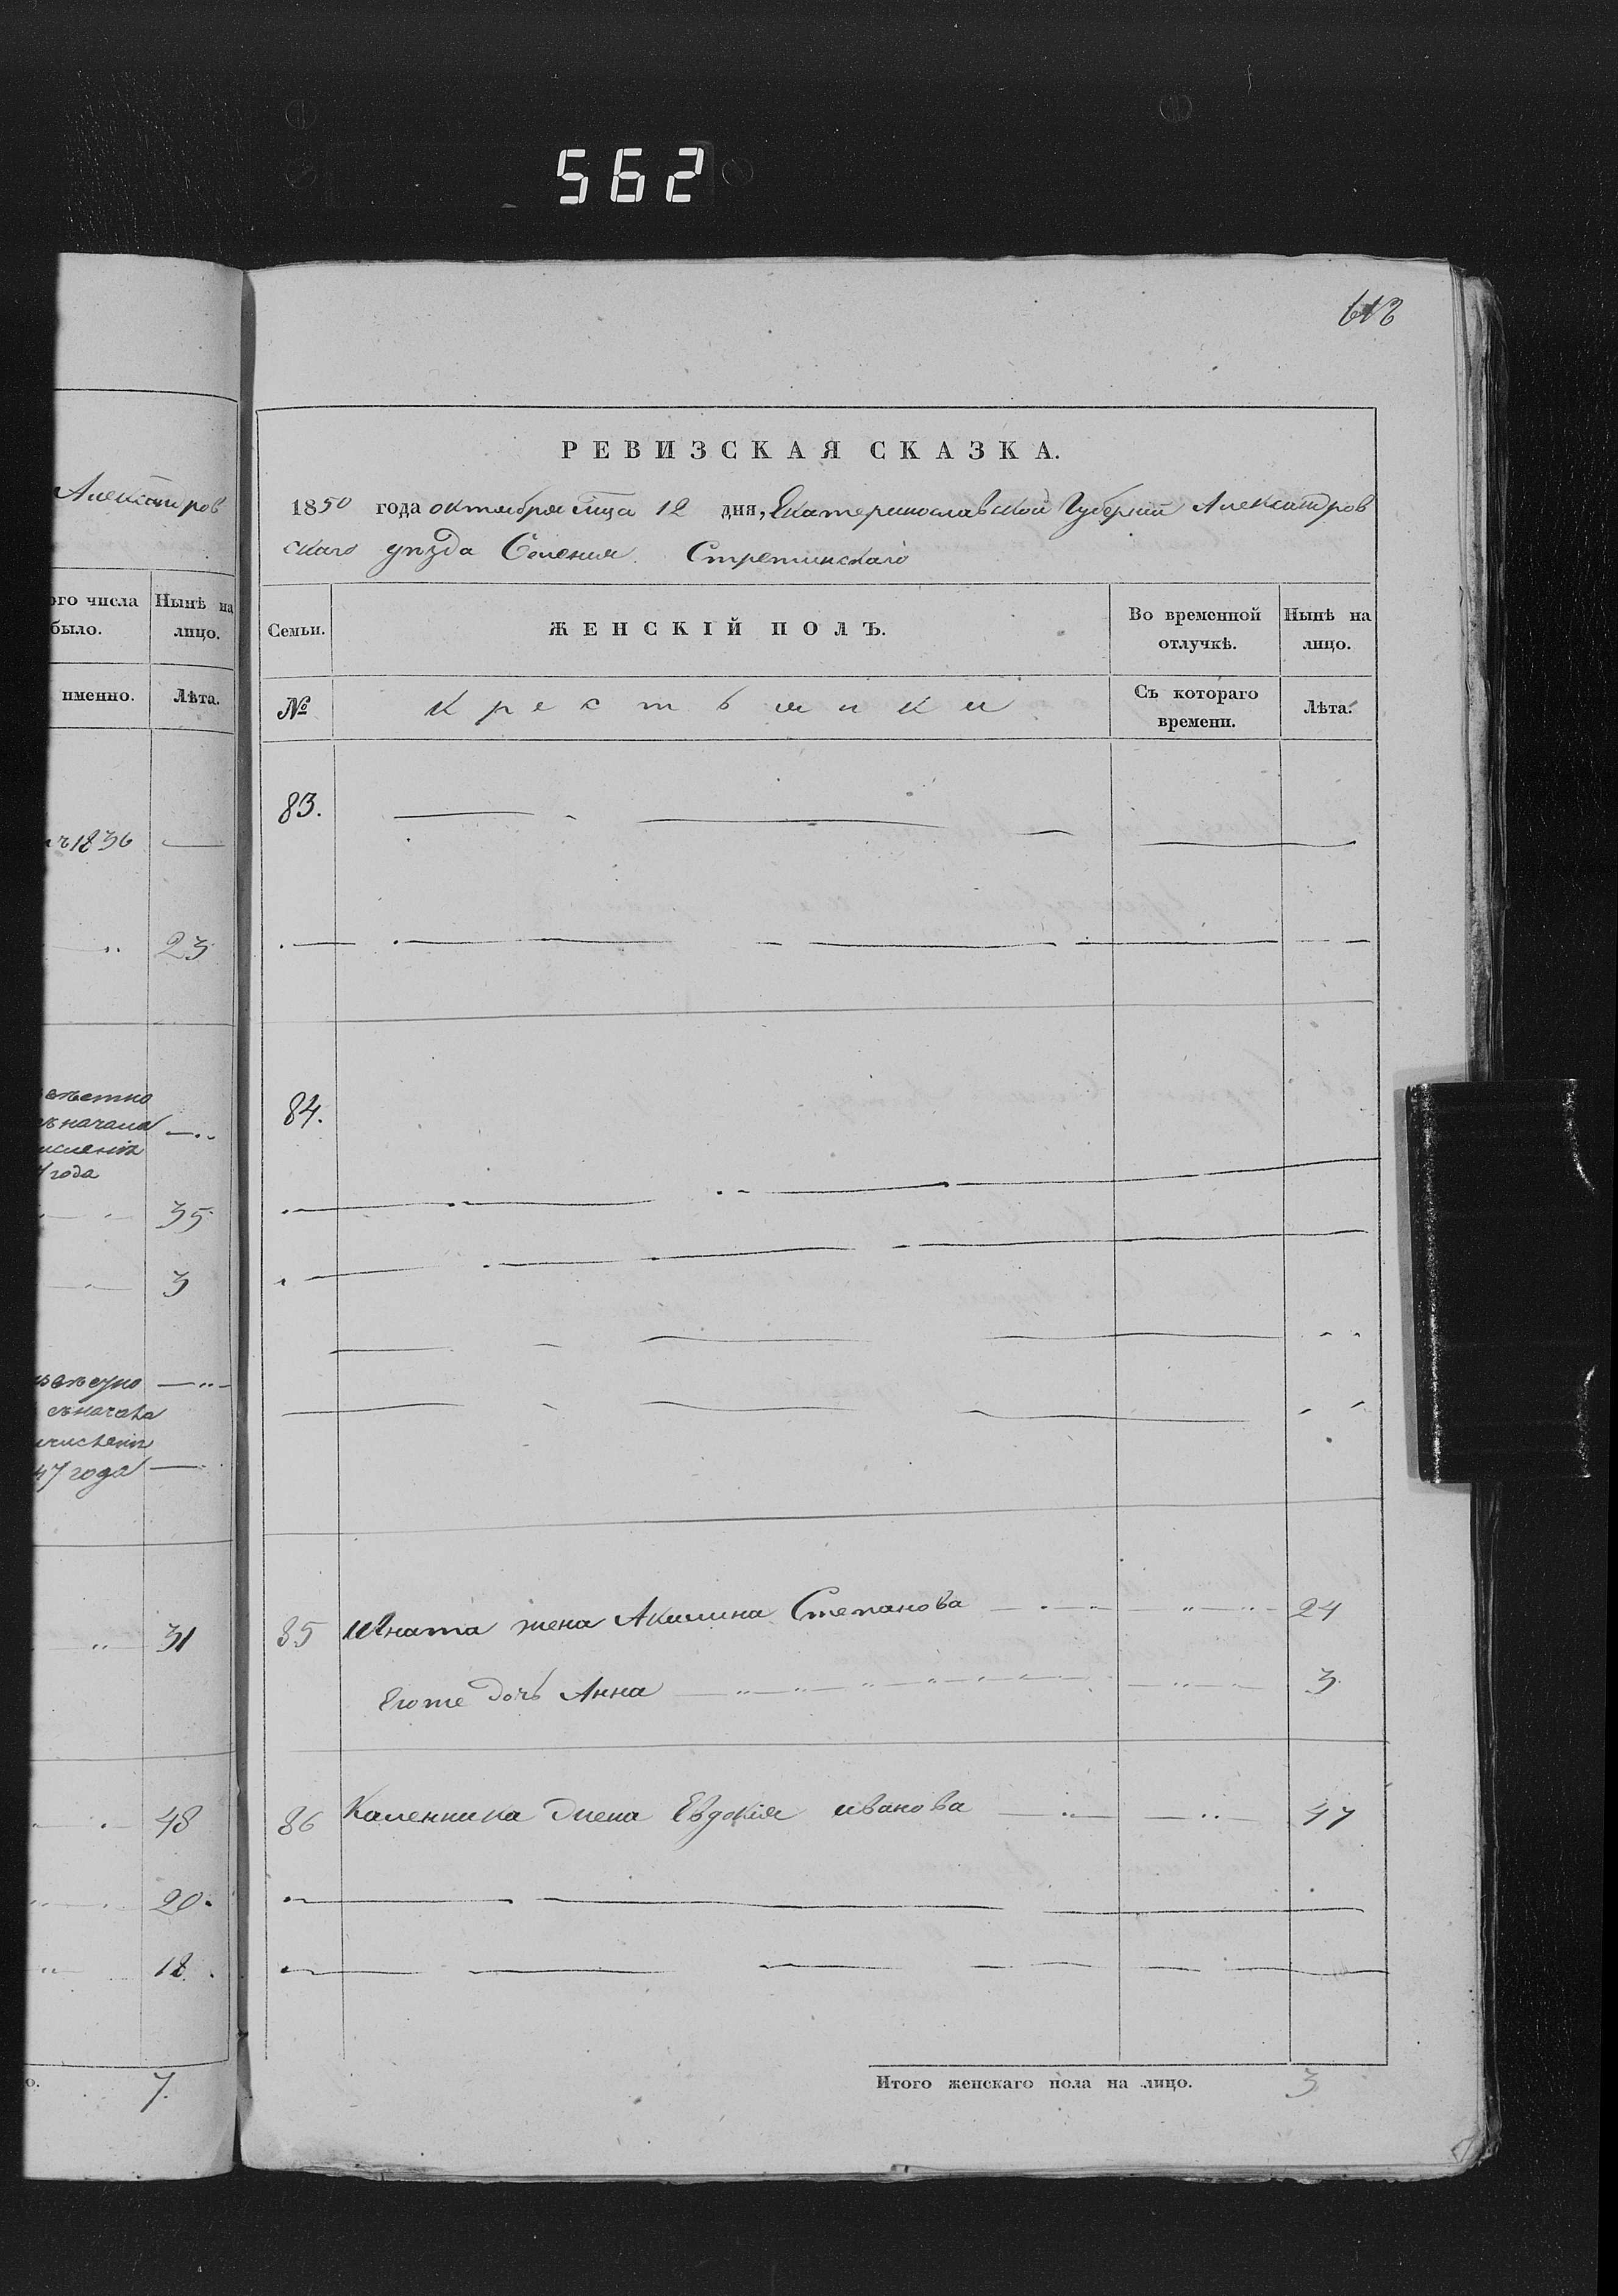 562
Александров
ого числа
было.
Нынѣ на
лицо.
именно.
Лѣта.
1836
23
начала
года
35
3
47 года
31
48
20.
18.
7.
РЕВИЗСКАЯ СКАЗКА.
1850 года октября мца 12 дня, Екатеринославской Губерніи Александров
скаго уѣзда Селения Стретинскаго
Семьи.
ЖЕНСКІЙ ПОЛЪ.
Во временной
отлучкѣ.
Нынѣ на
лицо.
№
Крестьянки
Съ котораго
времени.
Лѣта.
83.
84.
85 Игната жена Акилина Степанова 24
Егоже дочь Анна 3
86 Каленника жена Евдокія иванова 47
Итого женскаго пола на лицо. 3